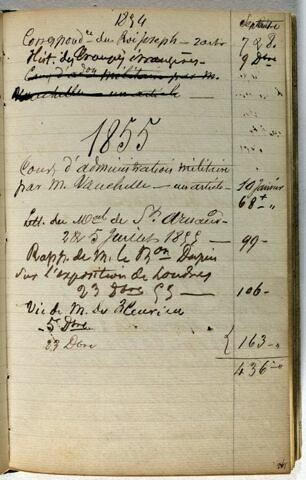 1854
Correspond.ce du Roi Joseph - 2 arts 7 & 8.
Hist. des Troupes étrangères 9 Dbre
Cours d'adon militaire par M.
Vauchelle - un article
1855
Cours d'administration militaire
par M. Vauchelle - un article 10 Janvier
68 "
Lett. du Mal de St Arnaud
28 5 Juillet 1855 99 -
Rapp. de M. le Bon Dupin
sur l'exposition de Londres
23 Dbre 55 106 -
Vie de M. de Fleurieu
5 Dbre
23 Dbre { 163 - "
436 - "